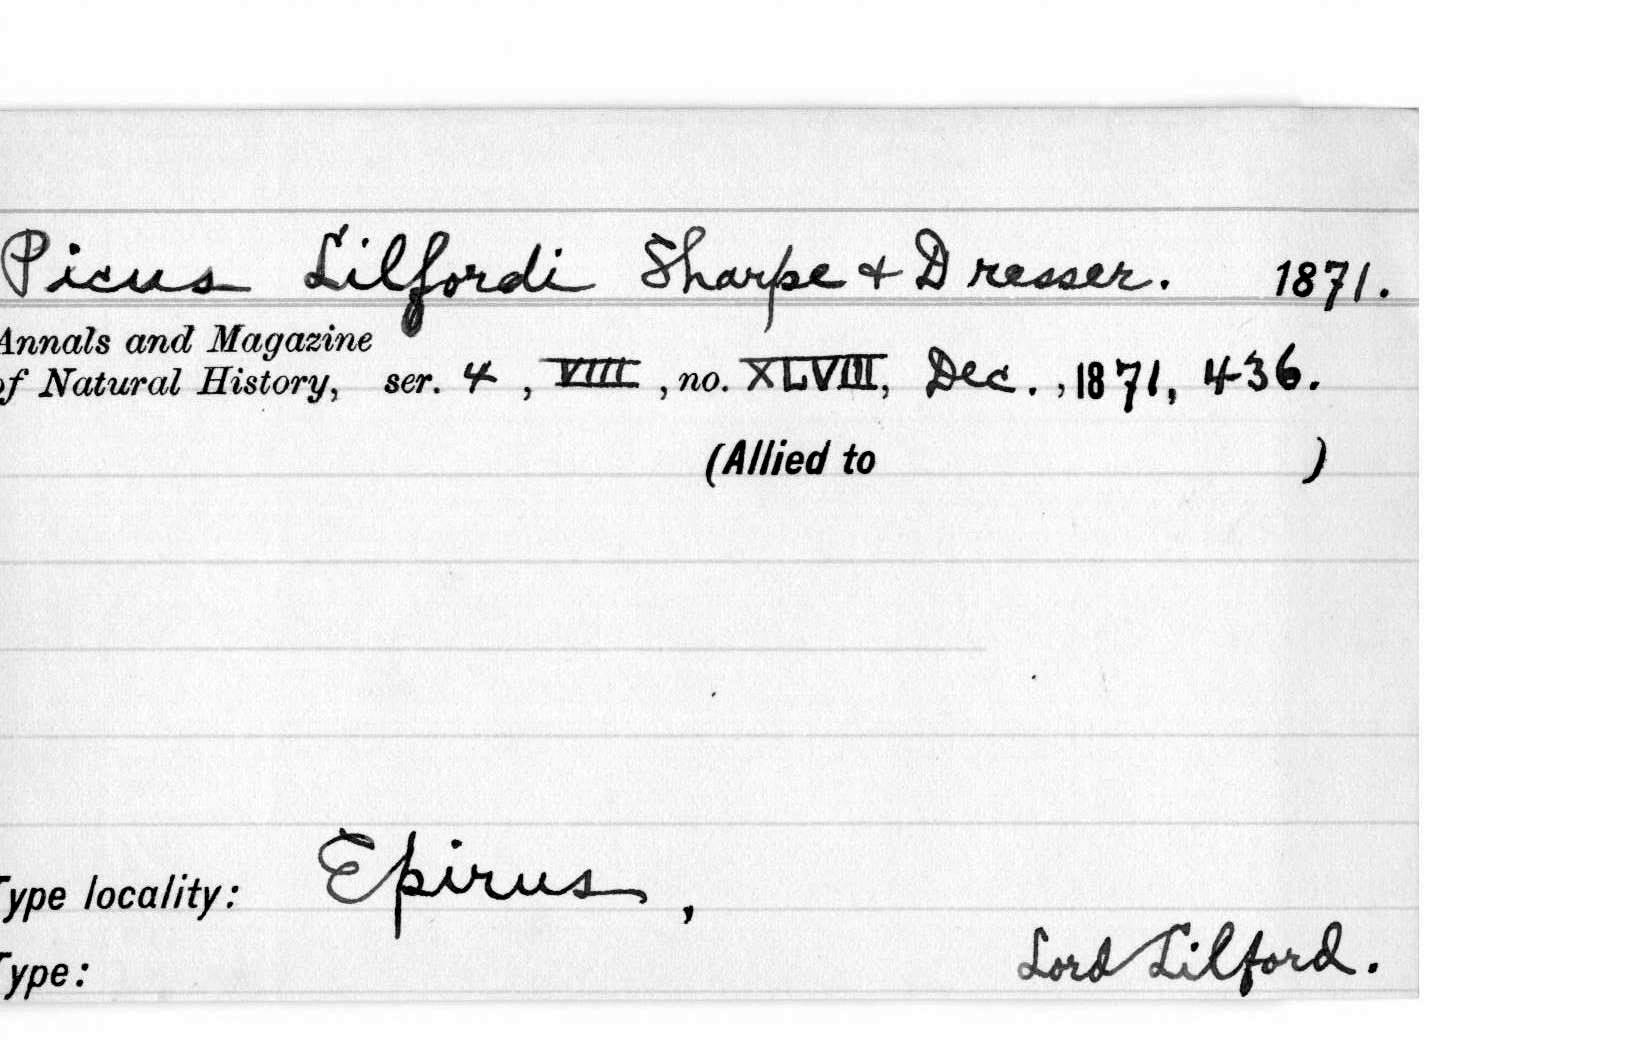 Picus Lilfordi Sharpe & Dresser. 1871.
Annals and Magazine
of Natural History, ser. 4, VIII, no. XLVIII, Dec., 1871, 436.
(Allied to )
Type locality: Epirus,
Type: Lord Lilford.